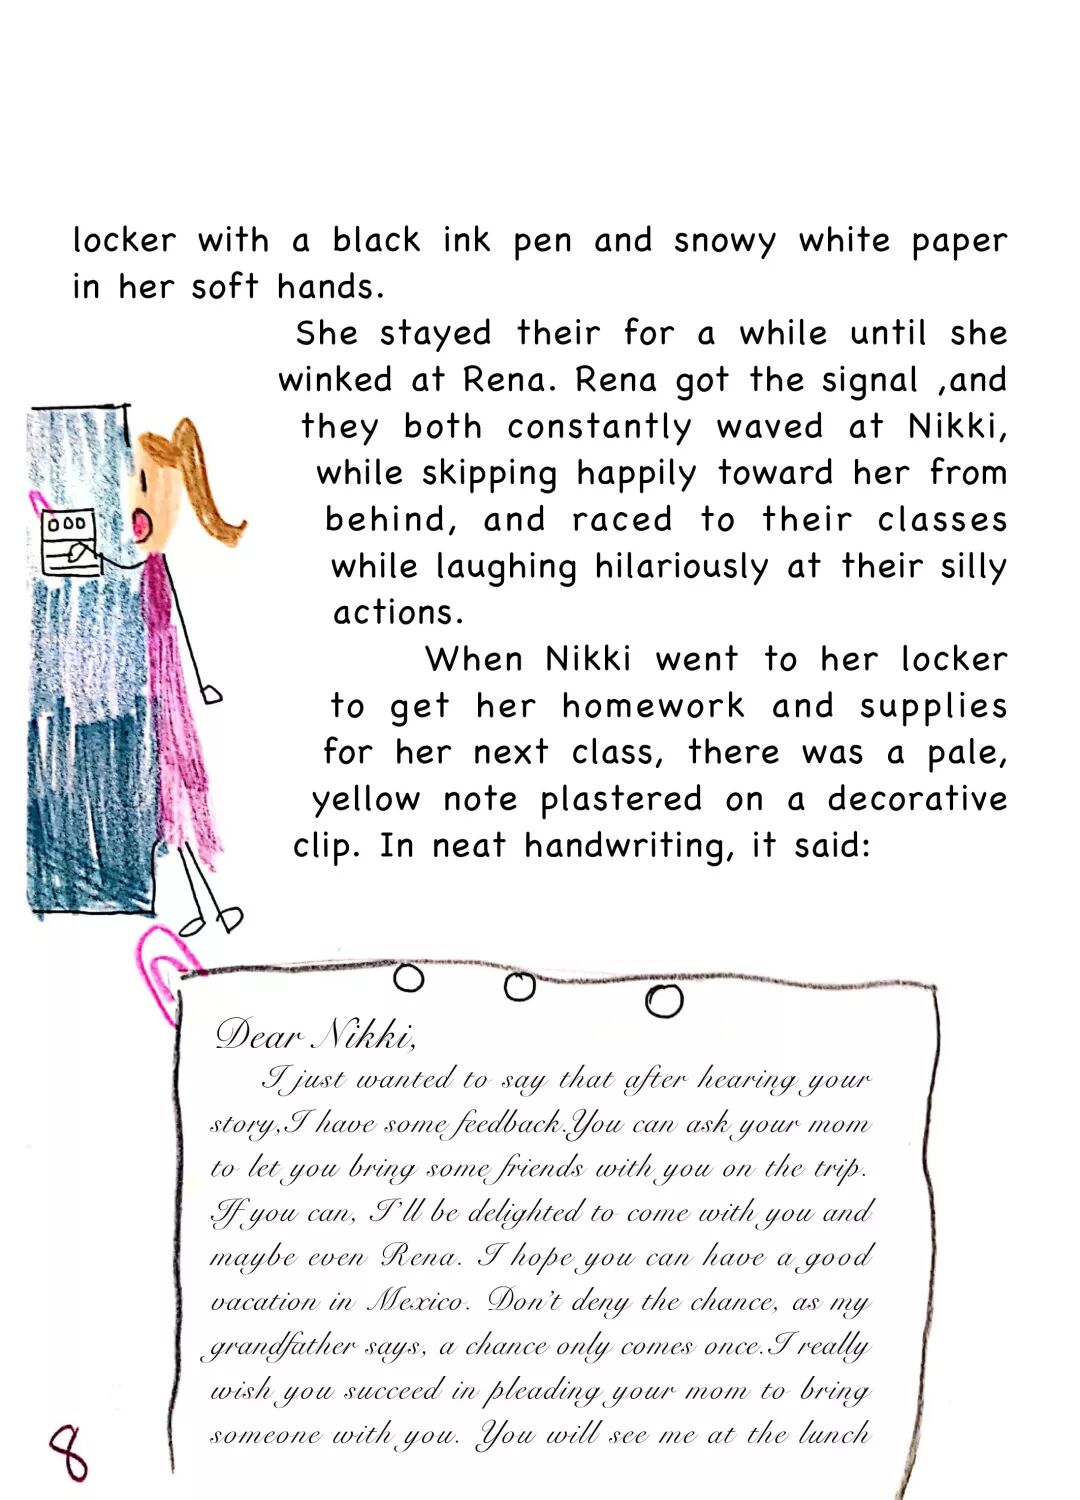 locker with a black ink pen and snowy white paper
in her soft hands.
She stayed their for a while until she
winked at Rena. Rena got the signal ,and
they both constantly waved at Nikki,
while skipping happily toward her from
behind, and raced to their classes
while laughing hilariously at their silly
actions.
When Nikki went to her locker
to get her homework and supplies
for her next class, there was a pale,
yellow note plastered on a decorative
clip. In neat handwriting, it said:
Dear Nikki,
I just wanted to say that after hearing your
story,I have some feedback.You can ask your mom
to let you bring some friends with you on the trip.
If you can, I'll be delighted to come with you and
maybe even Rena. I hope you can have a good
vacation in Mexico. Don't deny the chance, as my
grandfather says, a chance only comes once.I really
wish you succeed in pleading your mom to bring
someone with you. You will see me at the lunch
8